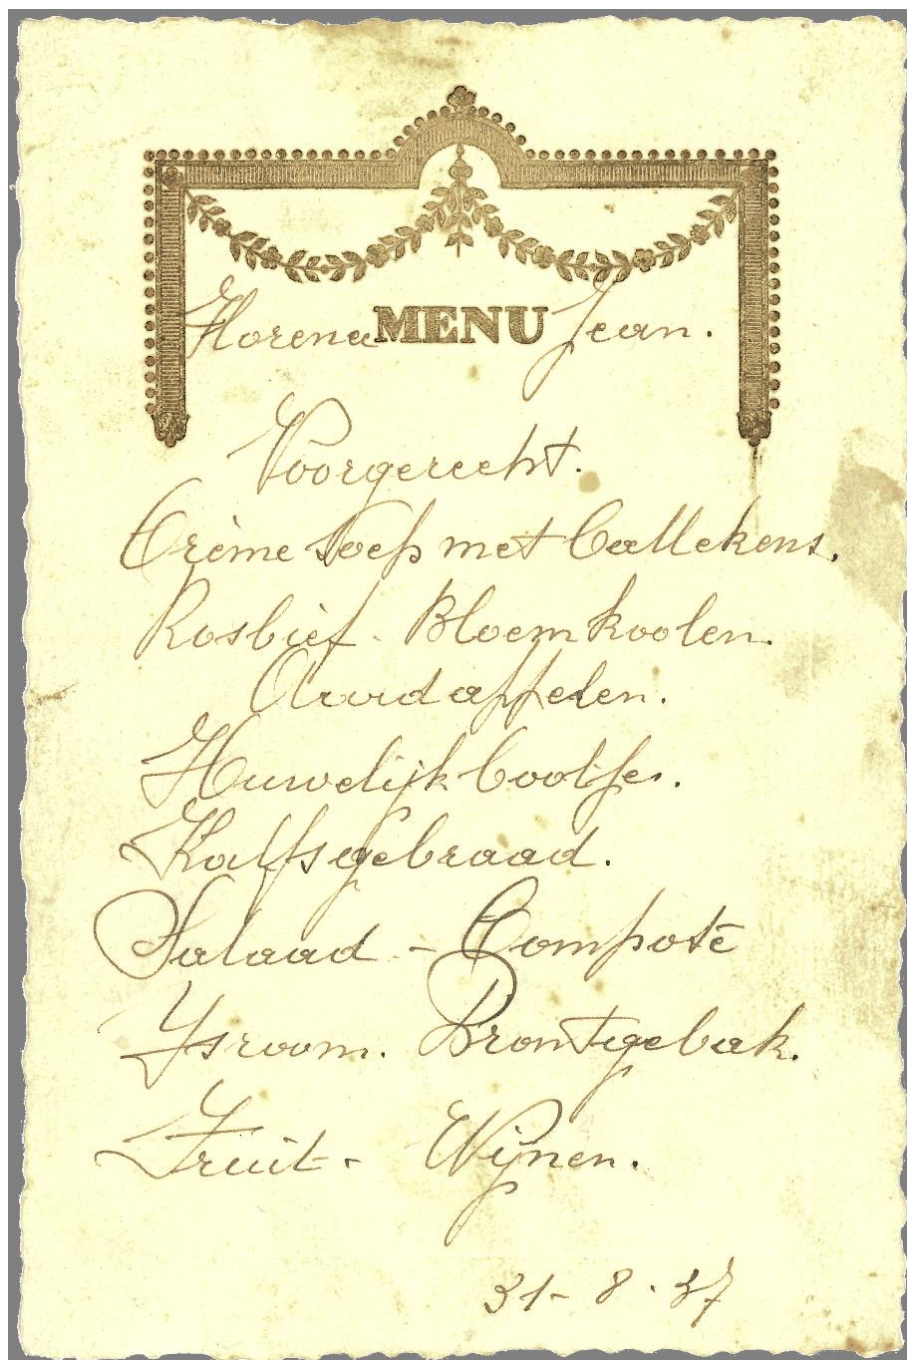 Florena MENU Jean.
Voorgerecht.
Crème Soep met Ballekens.
Rosbief. Bloemkoolen.
Aardappelen.
Huwelijkbootje.
Kalfsgebraad.
Salaad - Compote
Ysroom. Brontgebak.
Fruit - Wijnen.
31 - 8 . 37